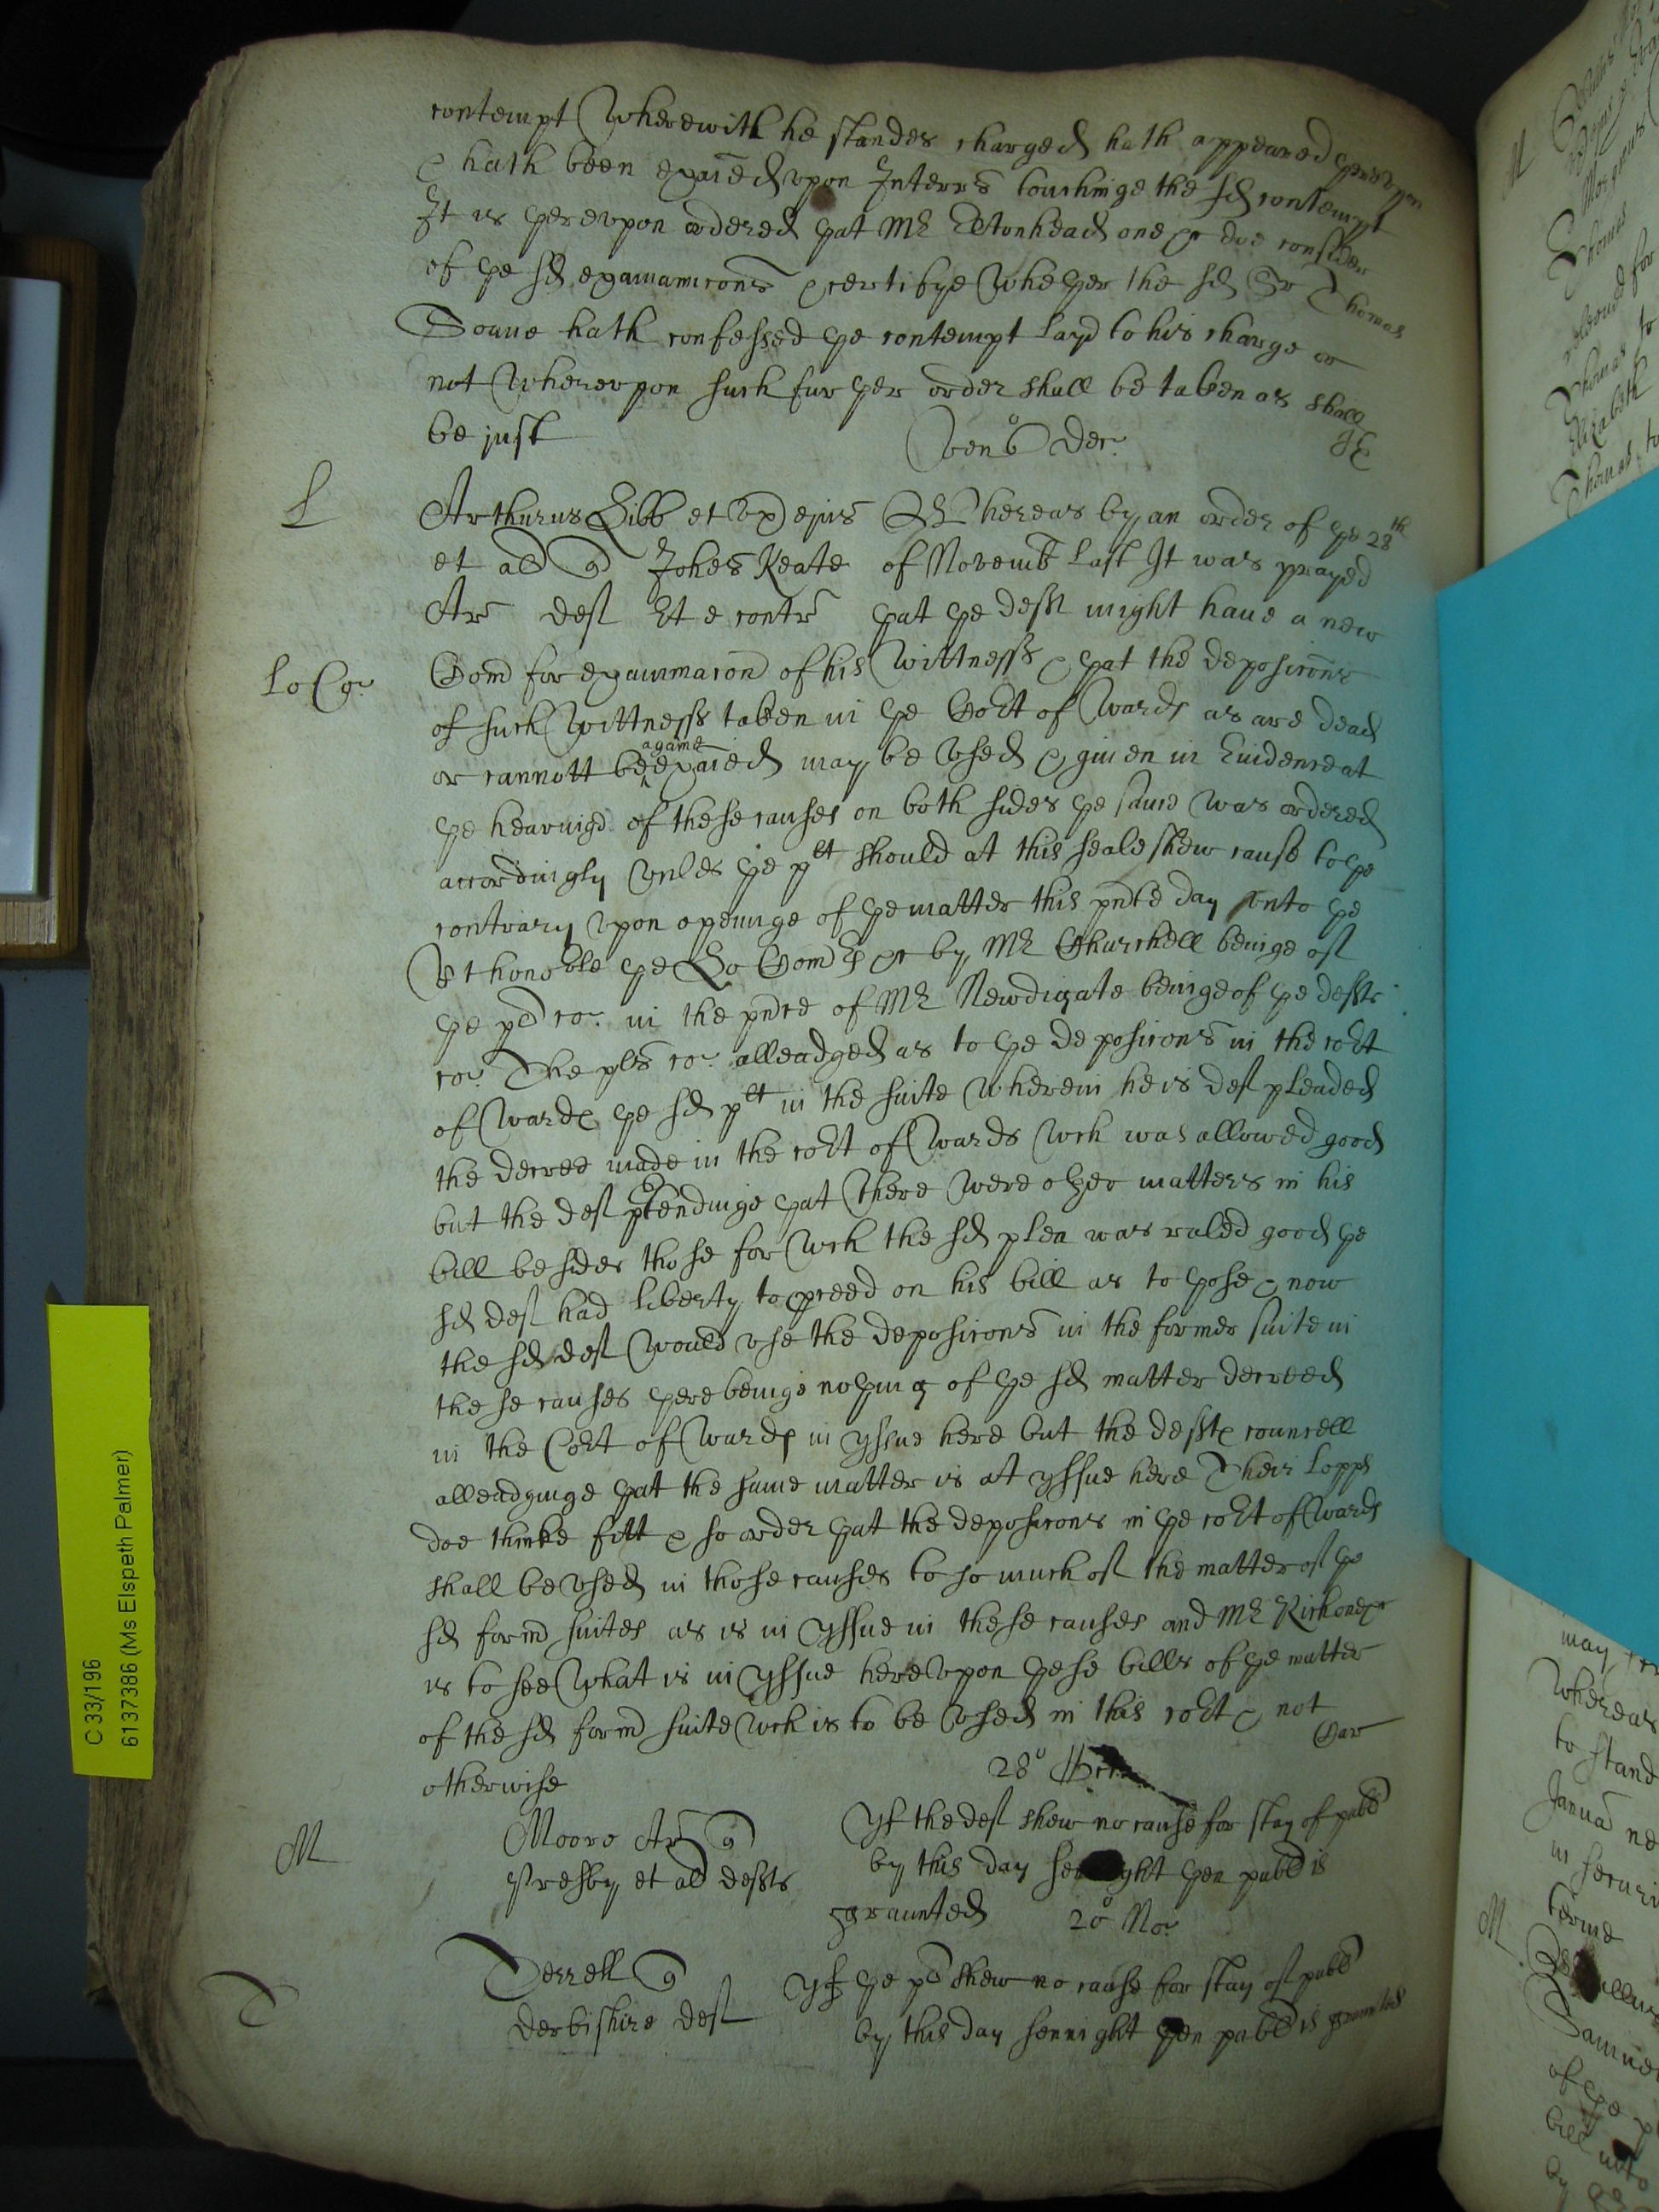 contempt wherewith he standes charged hath appeared þerevpon
& hath been exaīed vpon Interrs touchinge the sd contempt
It is þerevpon ordered þat Mr Edtonhead one &c doe consider
of þe sd examinacons & certifye wheþer the sd Sr Thomas
Soame hath confessed þe contempt layd to his charge or
not wherevpon such furþer order shall be taken as shall
be just
Ven 6o Dec.
L
Arthurus Libb et vx ejus Whereas by an order of þe 28th
et al q Johes Keate of Novemb last It was prayed
Ar def Et e contr þat þe deft might haue a new
Lo Co:
Com for examinacon of his wittness & þat the deposicons
of such wittness taken in þe Cort of wards as are dead
or cannott bee againe exaīed may be vsed & giuen in Euidence at
þe hearuig of these causes on both sides þe same was ordered
accordingly vnles þe plt should at this seale shew cause to þe
contrary vpon openinge of þe matter this pnte day vnto þe
Rt honoble þe Lo Comrs &c by Mr Churchell beinge of
þe pl co: in the pnce of Mr Newdigate beinge of þe defts
co: The pls co: alleadged as to þe deposicons in the cort
of wards þe sd plt in the suite wherein he is def pleaded
the decree made in the cort of wards wch was allowed good
but the def ptendinge þat there were oþer matters in his
bill besides those for wch the sd plea was ruled good þe
sd def had liberty to pceed on his bill as to þose & now
the sd def would vse the deposicons in the former suite in
these causes þere beinge noþing of þe sd matter decreed
in the Cort of wards in yssue here but the defts councell
alleadginge þat the same matter is at yssue here Their Lopps
doe thinke fitt & so order þat the deposicons in þe cort of wards
shall be vsed in those causes to so much of the matter of þe
sd form suites as is in yssue in these causes and Mr Rich one &c
is to see what is in yssue here vpon þese bills of þe matter
of the sd form suite wch is to be vsed in this cort & not
otherwise
Car
28o
M
Moore Ar q
Presby et al defts
Yf the def shew no cause for stay of publ
by this day sennight þen publ is
graunted
20o No:
T
Terrell q
Derbishire def
Yf þe pl shew no cause for stay of publ
by this day sennight þen publ is graunted
C 33/196
6137386 (Ms Elspeth Palmer)
M
Thomas
Thomas to
Elizabeth
Thomas to
may
Whereas
to stand
Janua
terme
M
of þe
bill vnto